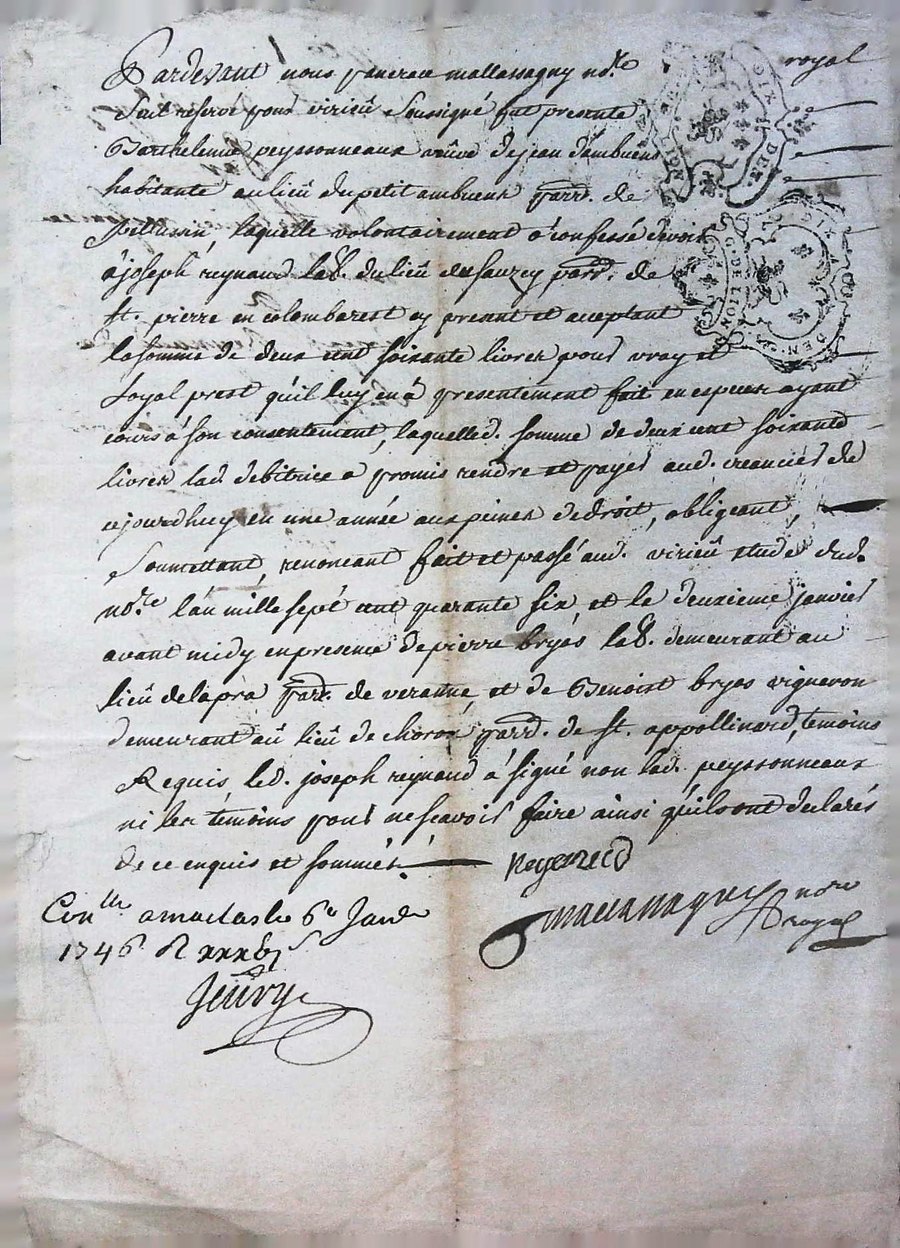 Pardevant nous mallassagny no.re royal
soussigné fut presente
Barthelemie peyssonneaux veuve de jean dambuens
habitante au lieu du petit ambuens parr. de
laquelle volontairement a confessé devoir
a joseph reynaud lab. du lieu de parr. de
st. pierre en colombarest cy present et acceptant
la somme de deux cent soixante livres pour vray et
loyal prest qu'il luy en a presentement fait en especes ayant
cours a son consentement, laquelle d. somme de deux cent soixante
livres lad. debitrice a promis rendre et payer aud. creancier de
cejourdhuy en une année aux peines de droit, obligeant,
soumettant, renoncant fait et passé aud. virieu etude dud.
no.re l'an mille sept cent quarante six et le deuxieme janvier
avant midy en presence de pierre bryas lab. demeurant au
lieu de lapra parr. de veranne, et de Benoist bryas vigneron
demeurant au lieu de choron parr. de st. appollinard, temoins
Requis led. joseph reynaud a signé non lad. peyssonneaux
ni les temoins pour ne scavoir faire ainsi qu'ils ont declarés
de ce enquis et sommés.
mallassagny no.re
royal
Con.lle a maclas le 6e Janv.
1746
G. DE LION
DIX DEN.